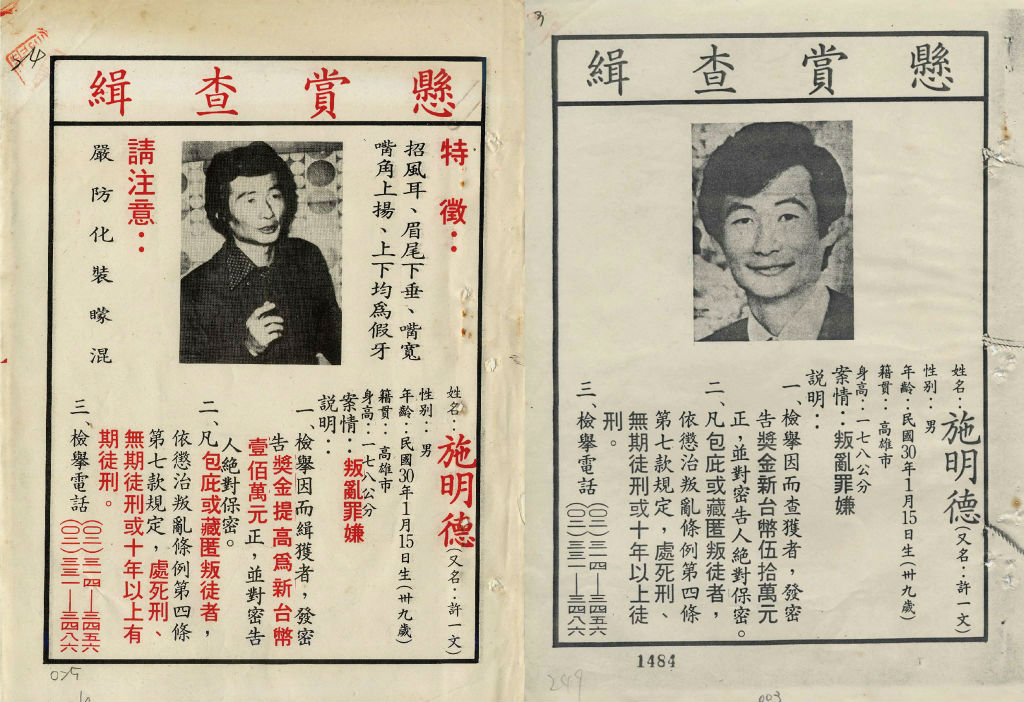 懸賞查緝
特徵：
招風耳、眉尾下垂、嘴寬
嘴角上揚、上下均為假牙
請注意：
嚴防化裝矇混
姓名：施明德（又名：許一文）
性別：男
年齡：民國30年1月15日生（卅九歲）
籍貫：高雄市
身高：一七八公分
案情：叛亂罪嫌
說明：
一、檢舉因而緝獲者，發密
告獎金提高為新台幣
壹佰萬元正，並對密告
人絕對保密。
二、凡包庇或藏匿叛徒者，
依懲治叛亂條例第四條
第七款規定，處死刑、
無期徒刑或十年以上有
期徒刑。
三、檢舉電話
（〇二）三一四—三四五六
（〇二）三三一—三四八六
075
3
懸賞查緝
姓名：施明德（又名：許一文）
性別：男
年齡：民國30年1月15日生（卅九歲）
籍貫：高雄市
身高：一七八公分
案情：叛亂罪嫌
說明：
一、檢舉因而查獲者，發密
告獎金新台幣伍拾萬元
正，並對密告人絕對保密。
二、凡包庇或藏匿叛徒者，
依懲治叛亂條例第四條
第七款規定，處死刑、
無期徒刑或十年以上徒
刑。
三、檢舉電話
（〇二）三一四—三四五六
（〇二）三三一—三四八六
1484
249
003